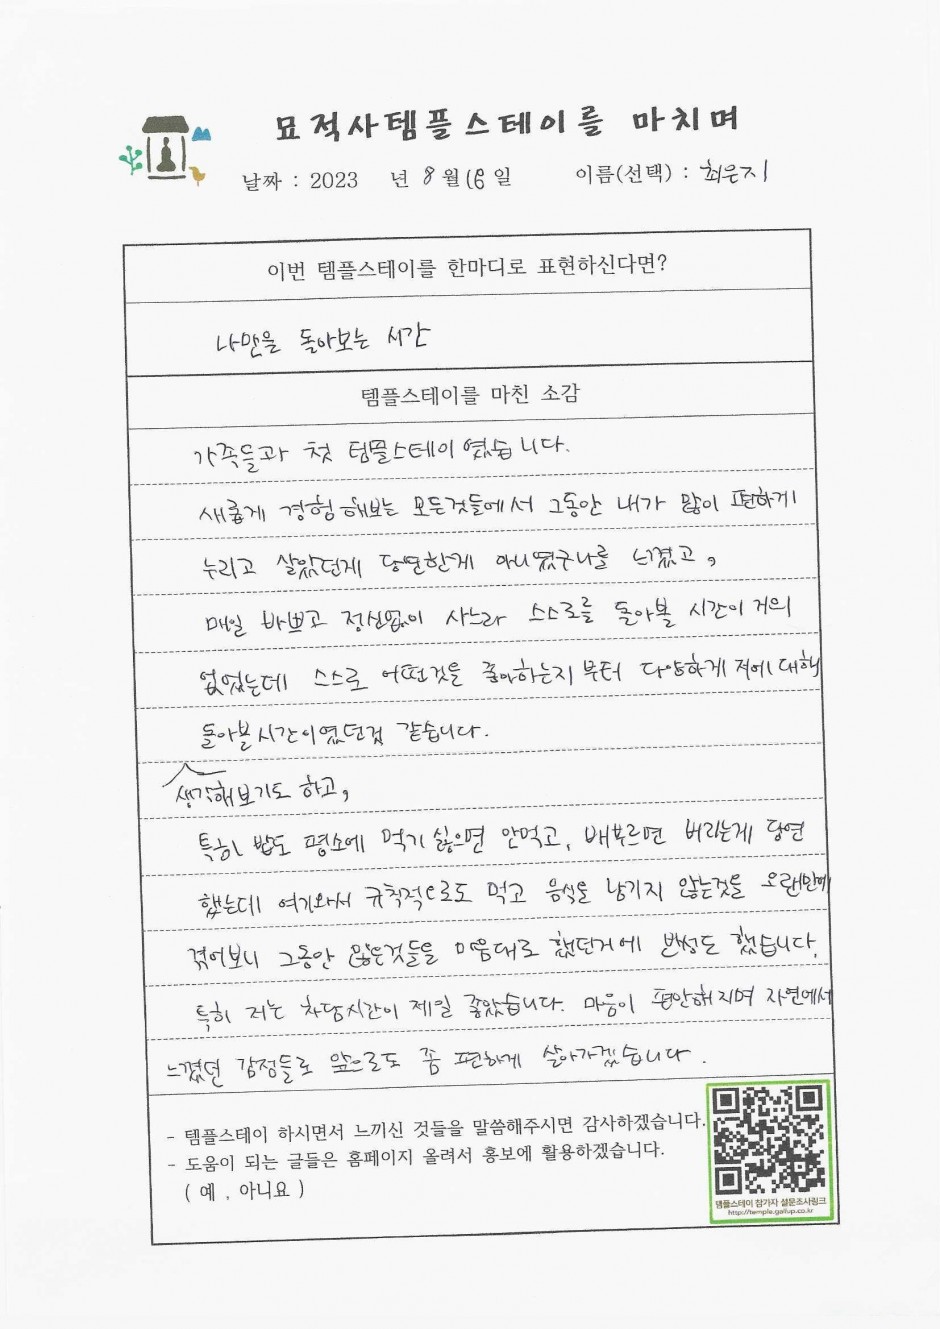 묘적사템플스테이를 마치며
날짜 : 2023 년 8월 16일 이름(선택) : 최은지
이번 템플스테이를 한마디로 표현하신다면?
나만을 돌아보는 시간
템플스테이를 마친 소감
가족들과 첫 템플스테이였습니다.
새롭게 경험해보는 모든것들에서 그동안 내가 많이 편하게
누리고 살았던게 당연한게 아니였구나를 느꼈고,
매일 바쁘고 정신없이 사느라 스스로를 돌아볼 시간이 거의
없었는데 스스로 어떤것을 좋아하는지부터 다양하게 저에 대해
돌아볼시간이였던것 같습니다.
생각해보기도 하고,
특히 밥도 평소에 먹기 싫으면 안먹고, 배부르면 버리는게 당연
했는데 여기와서 규칙적으로도 먹고 음식을 남기지 않는것을 오랜만에
겪어보니 그동안 많은것들을 마음대로 했던거에 반성도 했습니다.
특히 저는 차담시간이 제일 좋았습니다. 마음이 편안해지며 자연에서
느꼈던 감정들로 앞으로도 좀 편하게 살아가겠습니다.
- 템플스테이 하시면서 느끼신 것들을 말씀해주시면 감사하겠습니다.
- 도움이 되는 글들은 홈페이지 올려서 홍보에 활용하겠습니다.
( 예 , 아니요 )
템플스테이 참가자 설문조사링크
http://temple.gallup.co.kr